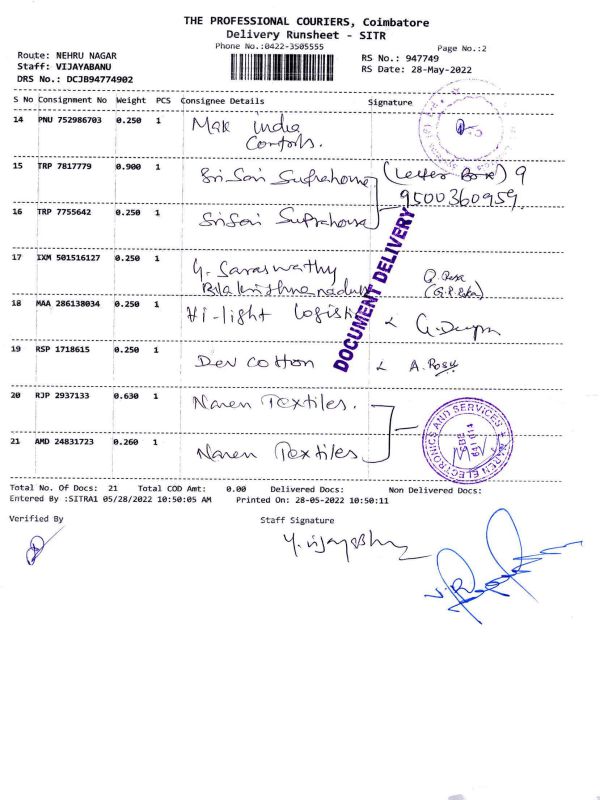 THE PROFESSIONAL COURIERS, Coimbatore
Delivery Runsheet - SITR
Phone No.:0422-3505555
Page No.:2
Route: NEHRU NAGAR
RS No.: 947749
Staff: VIJAYABANU
RS Date: 28-May-2022
DRS No.: DCJB94774902
S No Consignment No Weight PCS Consignee Details Signature
14 PNU 752986703 0.250 1 Mak India
Controls.
15 TRP 7817779 0.900 1 Sri Sai Suprahouse (Letter Box) 9
9500360959.
16 TRP 7755642 0.250 1 Sri Sai Suprahouse
17 IXM 501516127 0.250 1 G. Saraswathy
Balakrishnanadu
18 MAA 286138034 0.250 1 Hi-light Logistic
DOCUMENT DELIVERY
19 RSP 1718615 0.250 1 Dev cotton A. Rosy
20 RJP 2937133 0.630 1 Naren Textiles.
21 AMD 24831723 0.260 1 Naren Textiles
NAREN ELECTRONICS AND SERVICES
Total No. Of Docs: 21 Total COD Amt: 0.00 Delivered Docs: Non Delivered Docs:
Entered By :SITRA1 05/28/2022 10:50:05 AM Printed On: 28-05-2022 10:50:11
Verified By Staff Signature